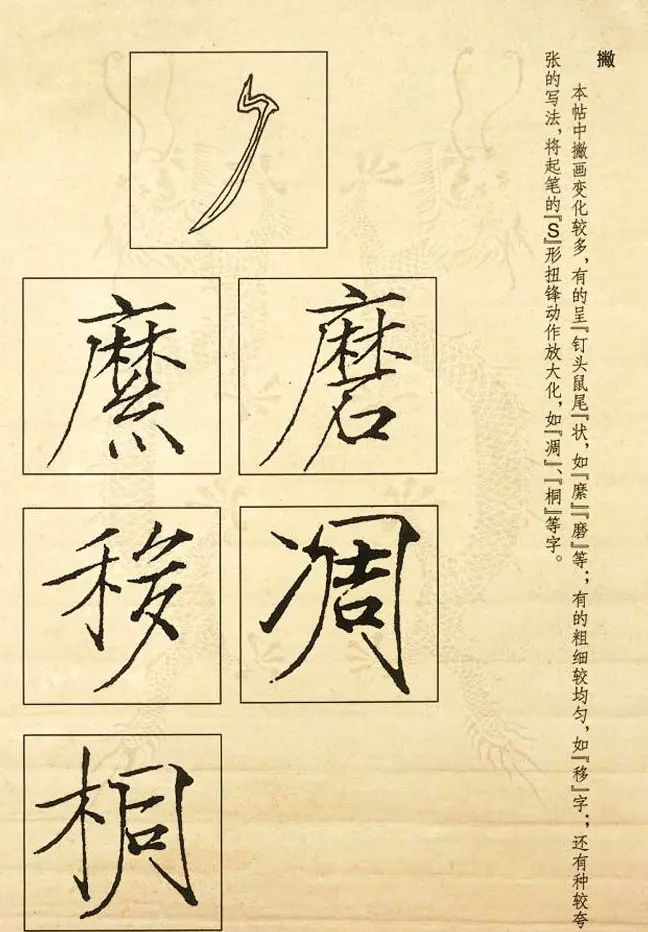 撇
本帖中撇画变化较多，有的呈『钉头鼠尾』状，如『縻』『磨』等；有的粗细较均匀，如『移』字；还有种较夸
张的写法，将起笔的『S』形扭锋动作放大化，如『凋』、『桐』等字。
磨
縻
凋
移
桐